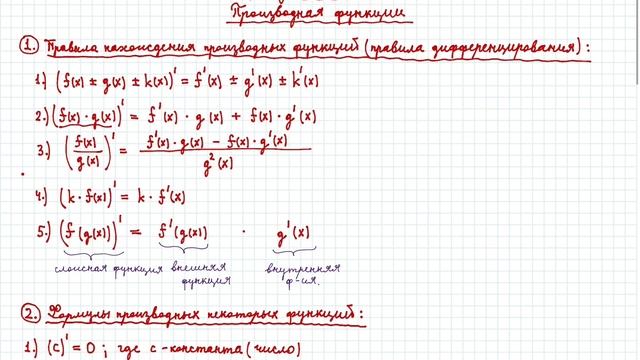 Производная функции
1. Правила нахождения производных функций (правила дифференцирования):
1.) (f(x) ± g(x) ± k(x))' = f'(x) ± g'(x) ± k'(x)
2.) (f(x) · g(x))' = f'(x) · g(x) + f(x) · g'(x)
3.) (f(x)/g(x))' = (f'(x) · g(x) - f(x) · g'(x))/g²(x)
4.) (k · f(x))' = k · f'(x)
5.) (f(g(x))' = f'(g(x)) · g'(x)
сложная функция внешняя функция внутренняя ф-ия.
2. Формулы производных некоторых функций:
1.) (c)' = 0 ; где c - константа (число)